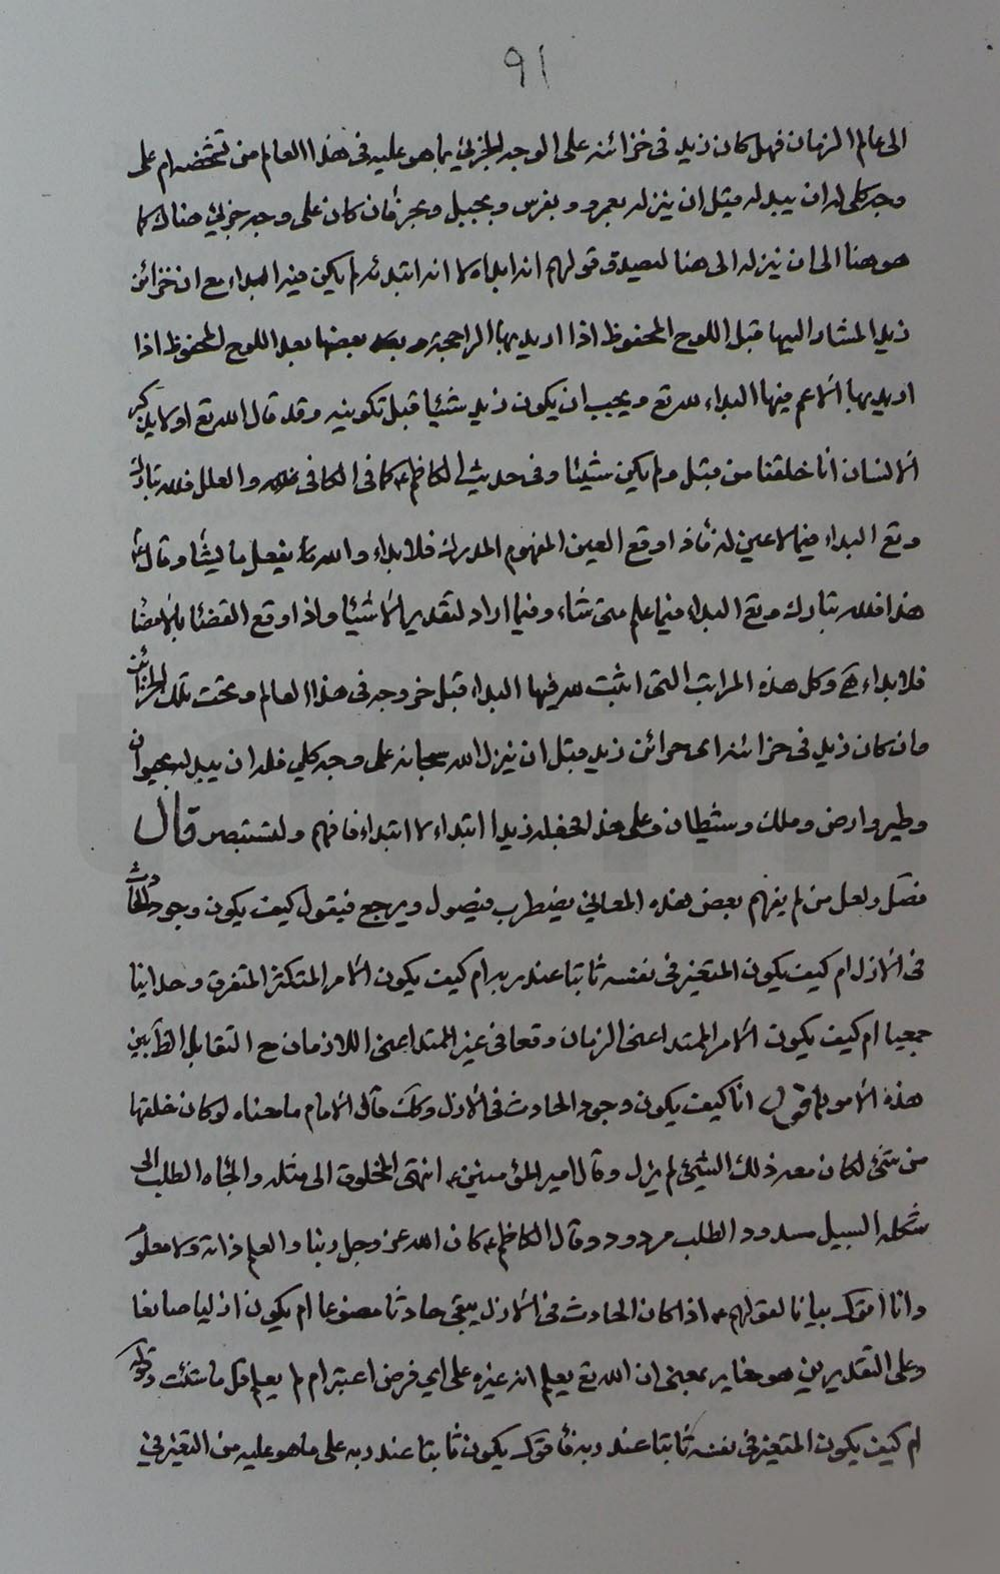 ٩١
الى عالم الزمان فهل كان زيد فى خزائنه على الوجه الجزئى بما هو عليه فى هذا العالم من تشخصه ام على
وجه كلى له ان يبدله مثل ان ينزله بعمرو وبفرس وبجبل وبحجر فان كان على وجه جزئى هناك كما
هو هنا الى ان ينزله الى هنا لصدق قولهم انه ابداه لا انه ابتدئه لم يكن فيه البداء مع ان خزائن
زيد المشار اليها قبل اللوح المحفوظ اذا اريد بها الراجحية وبعضها بعد اللوح المحفوظ اذا
اريد بها الاعم فيها البداء لله تع ويجب ان يكون زيد شيئا قبل تكوينه وقد قال الله تع اولا يذكر
الانسان انا خلقناه من قبل ولم يكن شيئا وفى حديث الكاظم ع كما فى الكافى والعلل فلله تبارك
وتع البداء فيما لا عين له فاذا وقع العين المفهوم المدرك فلا بداء والله يفعل ما يشاء وقال
هذا فلله تبارك وتع البداء فيما علم متى شاء وفيما اراد لتقدير الاشياء فاذا وقع القضاء بالامضاء
فلا بداء وكل هذه المراتب التى اثبت لله فيها البداء قبل خروجه فى هذا العالم وتحت تلك الخزائن
وان كان زيد فى خزائنه اى خزائن زيد قبل ان ينزل الله سبحانه على وجه كلى فله ان يبدله بحيوان
وطير وارض وملك وشيطان وعلى هذا يجعله زيدا ابتداء لا ابتداء فافهم ولتستبصر قال
فصل ولعل من لم يفهم بعض هذه المعانى يضطرب فيصول ويرجع فيقول كيف يكون وجود الحادث
فى الازل ام كيف يكون المتغير فى نفسه ثابتا عند ربه ام كيف يكون الامر المتكثر المتفرق وحدانيا
جمعيا ام كيف يكون الامر الممتد اعنى الزمان واقعا فى غير الممتد اعنى اللازمان مع التقابل الظاهر بين
هذه الامور اقول انا كيف يكون وجود الحادث فى الازل وكذلك قال الامام ما معناه لو كان خلقها
من شئ لكان معه ذلك الشئ لم يزل وقال امير المؤمنين ع انتهى المخلوق الى مثله والجاه الطلب الى
شكله السبيل مسدود الطلب مردود وقال الكاظم ع كان الله عز وجل ربنا والعلم ذاته ولا معلوم
وانا اقول بيانا لقولهم ع اذا كان الحادث فى الازل يبقى حادثا مصنوعا ام يكون ازليا صانعا
وعلى التقديرين هو مغاير بمعنى ان الله تع يعلم انه غيره على اى فرض اعتبر ام لم يعلم قل ما شئت وقوله
ام كيف يكون المتغير فى نفسه ثابتا عند ربه فاقول يكون ثابتا عند ربه على ما هو عليه من التغير فى